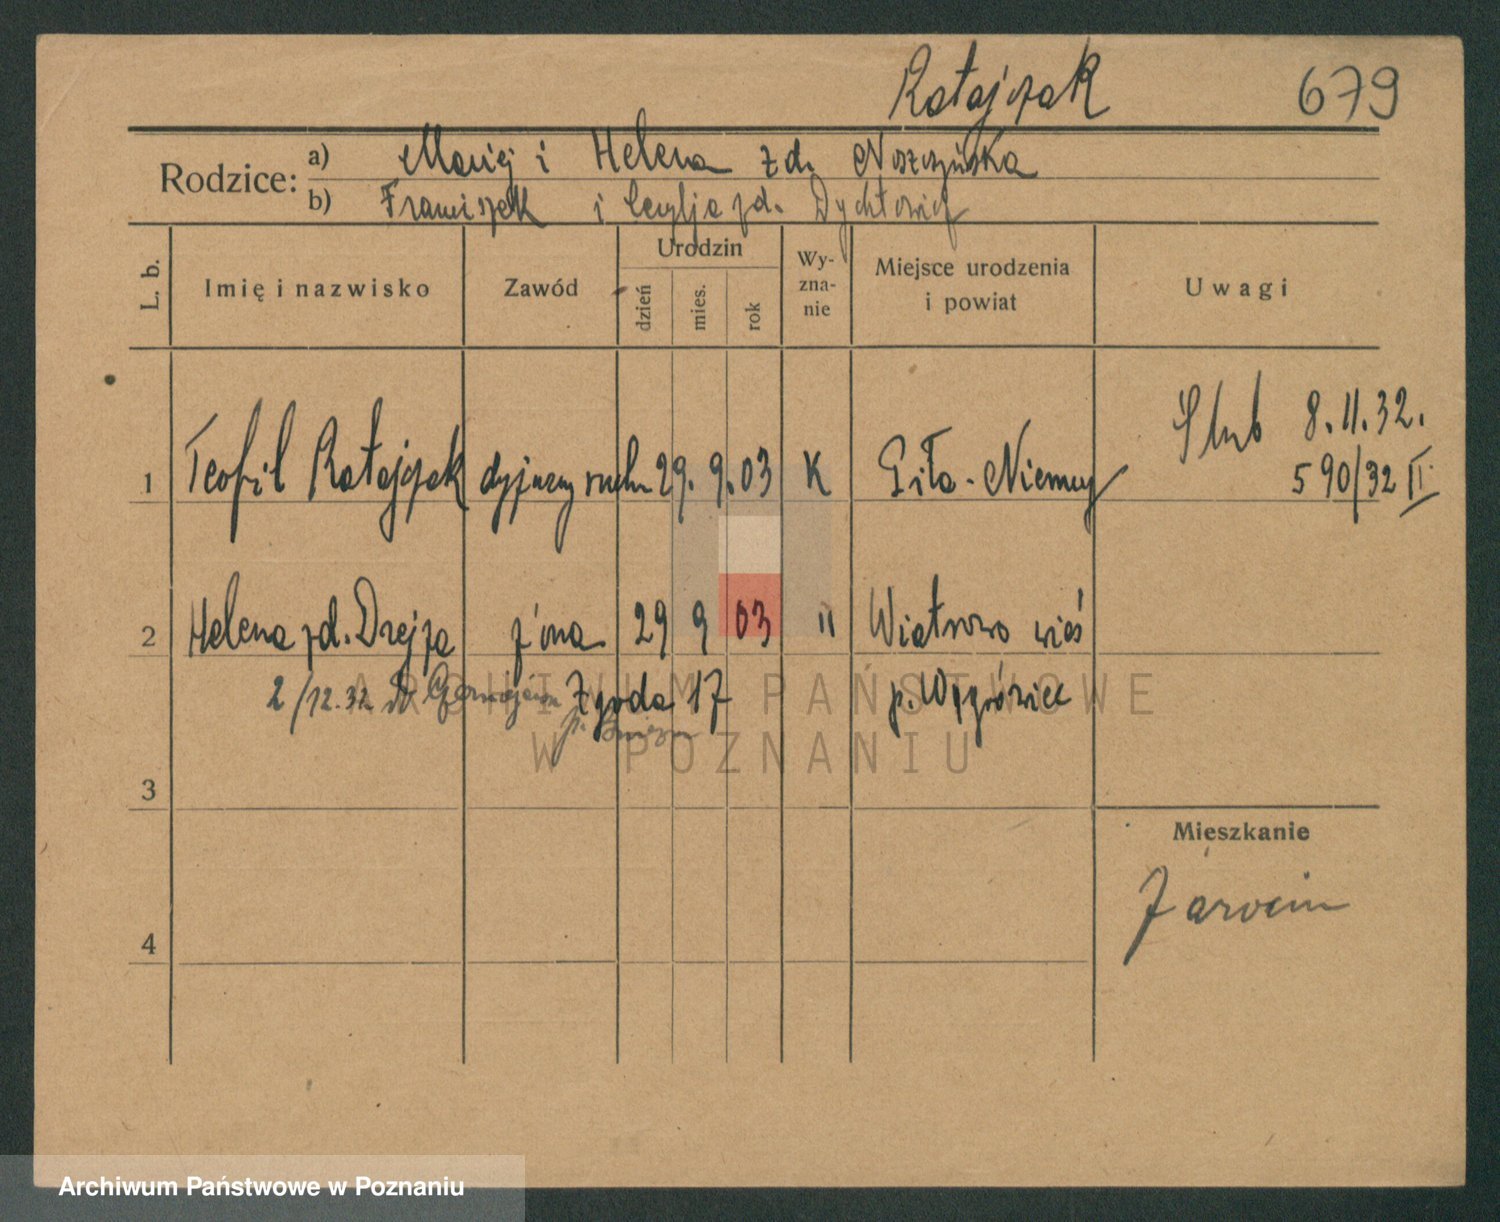 Ratajczak 679
Rodzice: a) Maciej i Helena zd. Noszczyńska
b) Franciszek i Cecylja zd.
L. b. Imię i nazwisko Zawód Urodzin dzień mies. rok Wy-zna-nie Miejsce urodzenia i powiat Uwagi
Ślub 8.11.32.
1 Teofil Ratajczak dyżurny ruchu 29. 9. 03 K Piła - Niemcy 590/32 II
2 Helena zd. Drejza ż'ona 29 9 03 " Wiatrowo wieś
2/12.32 Zgoda 17 p. Wągrówiec
p.
ARCHIWUM PAŃSTWOWE
W POZNANIU
3
Mieszkanie
Jarocin
4
Archiwum Państwowe w Poznaniu